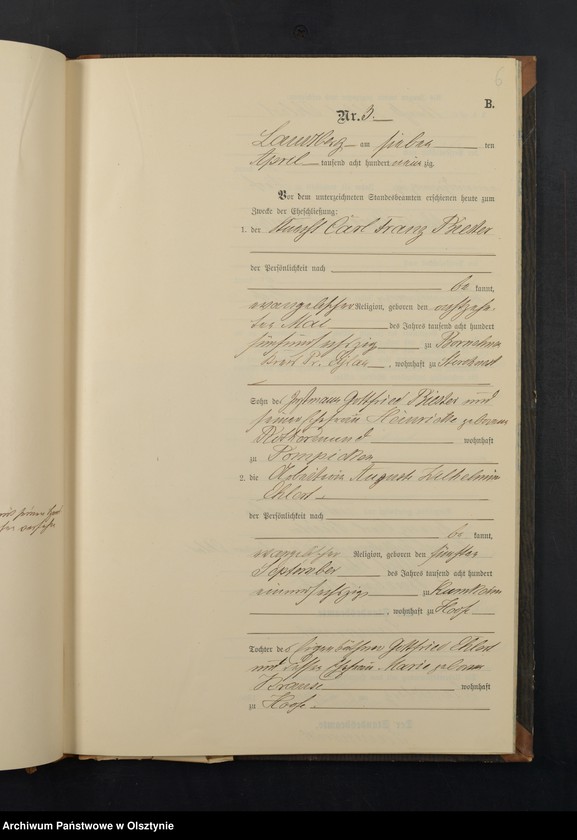 6
B.
Nr. 3.
Landsberg am sieben ten
April tausend acht hundert neun zig.
Vor dem unterzeichneten Standesbeamten erschienen heute zum
Zwecke der Eheschließung:
1. der Carl Franz Biester
der Persönlichkeit nach
be kannt,
evangelischer Religion, geboren den achtzehn
ten Mai des Jahres tausend acht hundert
fünfundsechzig zu
Kreis Pr. Eylau, wohnhaft zu
Sohn des Gottfried Biester und
seiner Ehefrau Heinriette geborene
wohnhaft
zu Pompicken
2. die Arbeiterin Auguste Wilhelmine
Ehlert
der Persönlichkeit nach
be kannt,
evangelischer Religion, geboren den fünften
September des Jahres tausend acht hundert
einundsechzig zu
, wohnhaft zu Hoofe
Tochter des Gottfried Ehlert
und dessen Ehefrau Marie geborene
Krause wohnhaft
zu Hoofe.
Archiwum Państwowe w Olsztynie